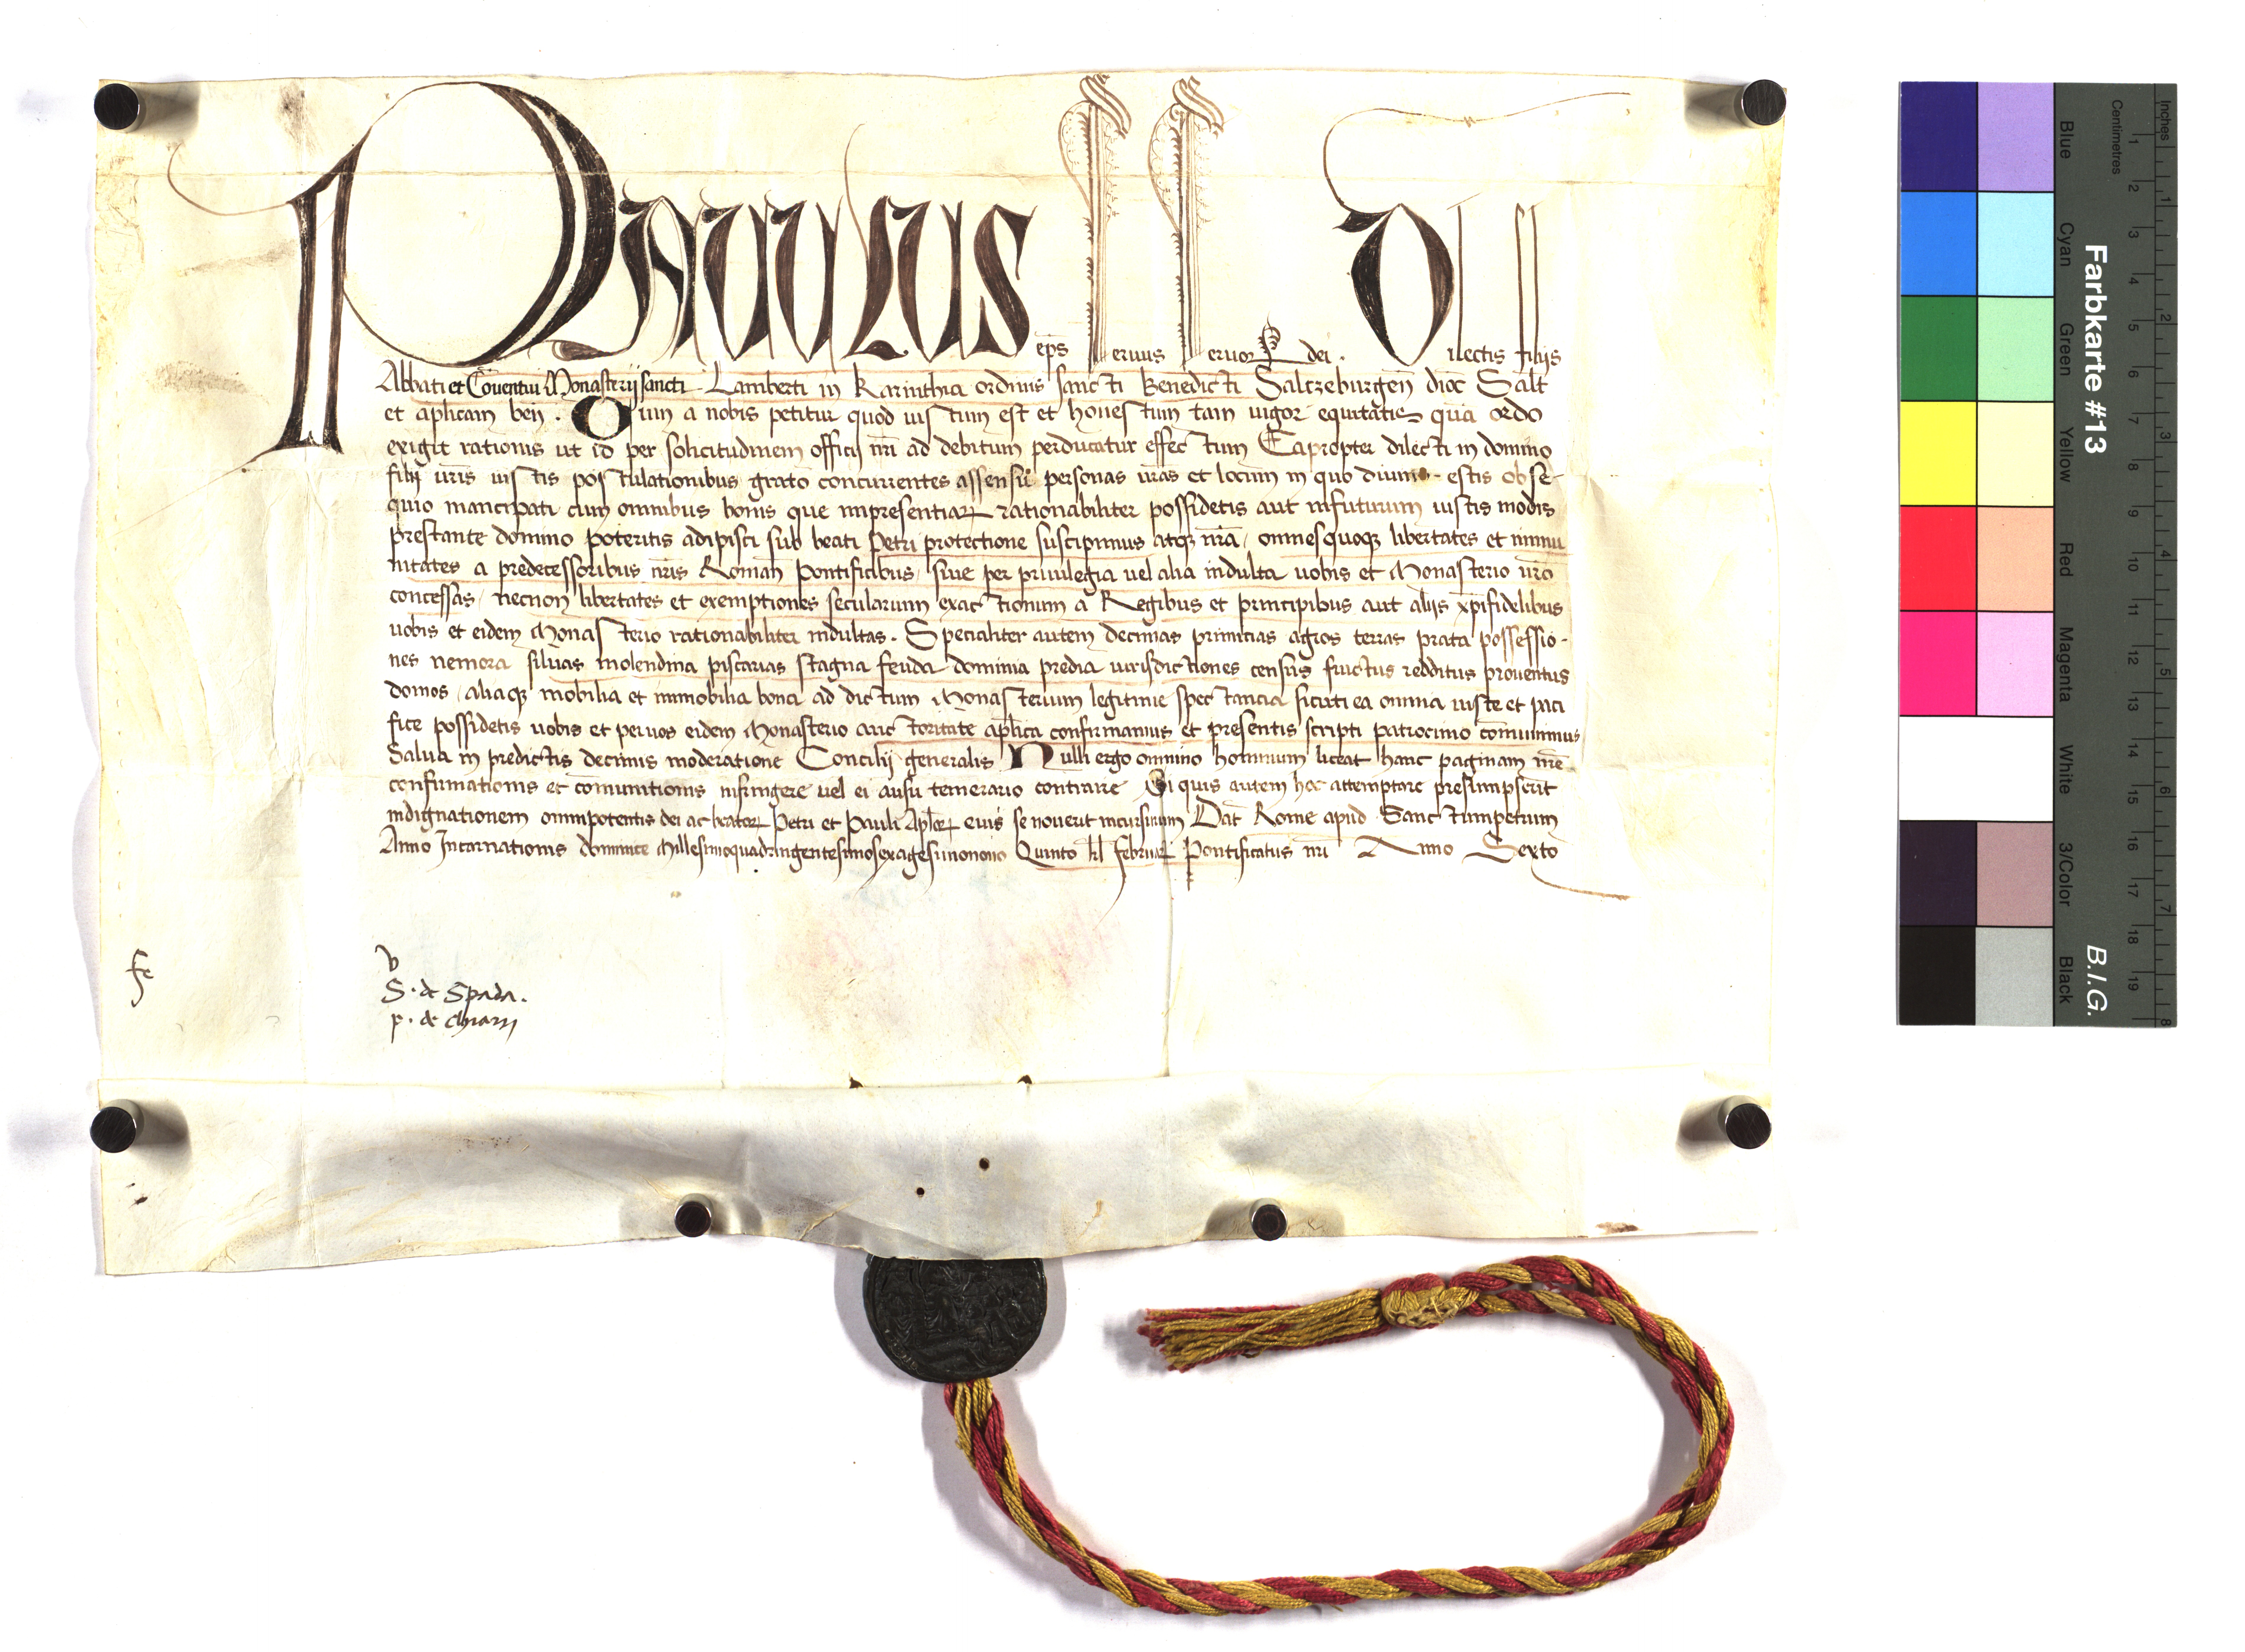 PAUULUS eps Seruus Seruor dei . Dilectis filijs
Abbati et Conuentui Monasterij sancti Lamberti in Karinthia ordinis sancti Benedicti Saltzeburgen dioc Salt
et aplicam ben . Cum a nobis petitur quod iustum est et honestum tam uigor equitatis qua ordo
exigit rationis ut id per solicitudinem officij nri ad debitum perducatur effectum Eapropter dilecti in domino
filij uris iustis postulationibus grato concurrentes assensu personas uras et locum in quo diuino estis obse-
quio mancipati cum omnibus bonis que impresentiar rationabiliter possidetis aut infuturum iustis modis
prestante domino poteritis adipisci sub beati Petri protectione suscipimus atq nra, omnesquoq libertates et immu
nitates a predecessoribus nris Roman Pontificibus, siue per priuilegia uel alia indulta uobis et Monasterio uro
concessas, necnon libertates et exemptiones secularium exactionum a Regibus et principibus aut alijs xpifidelibus
uobis et eidem Monasterio rationabiliter indultas . Specialiter autem decimas primitias agros terras prata possessio-
nes nemora siluas molendina piscarias stagna feuda dominia predia iurisdictiones census fructus redditus prouentus
domos, aliaq mobilia et immobilia bona ad dictum Monasterium legitime spectancia sicuti ea omnia iuste et paci
fice possidetis uobis et peruos eidem Monasterio auctoritate aplica confirmamus et presentis scripti patrocinio comunimus
Salua in predictis decimis moderatione Concilij generalis Nulli ergo omnino hominum liceat hanc paginam nre
confirmationis et comunitionis infringere uel ei ausu temerario contraire Si quis autem hoc attemptare presumpserit
indignationem omnipotentis dei ac beator Petri et Pauli Aplor eius se nouerit incursurum Dat Rome apud Sanctumpetrum
Anno Incarnationis dominice Millesimoquadringentesimosexagesimonono Quinto kl februar Pontificatus nri Anno Sexto
S. de Spada.
p. de Chiarij
Farbkarte #13
B.I.G.
Inches 1 2 3 4 5 6 7 8
Centimetres 1 2 3 4 5 6 7 8 9 10 11 12 13 14 15 16 17 18 19
Blue
Cyan
Green
Yellow
Red
Magenta
White
3/Color
Black